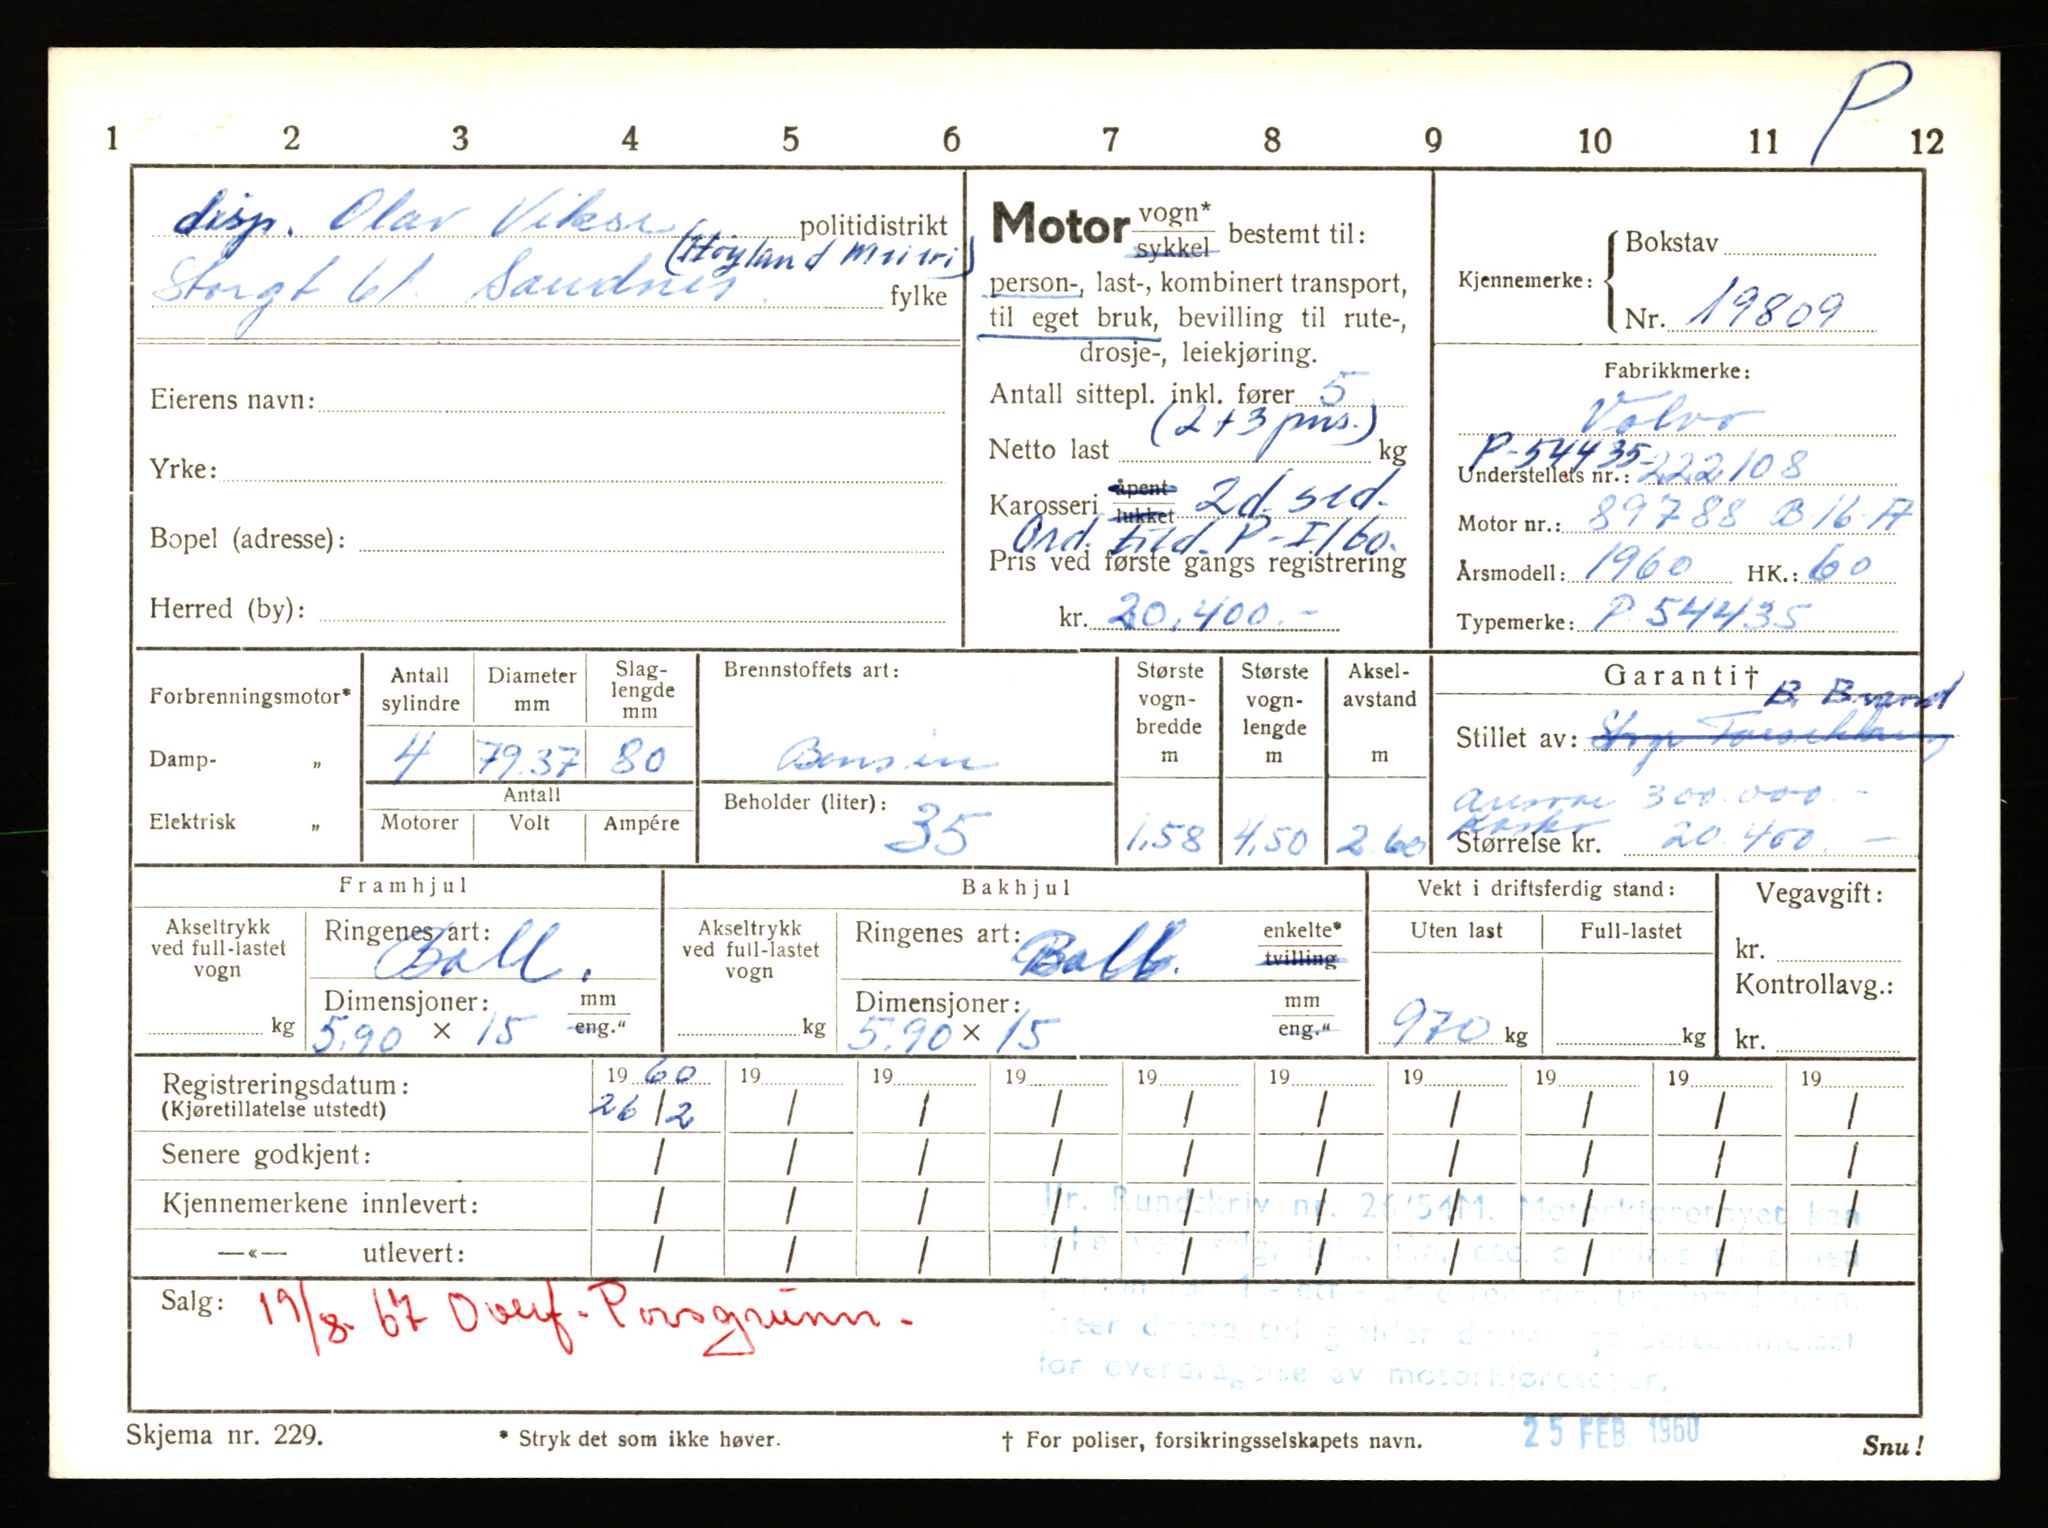 P
1 2 3 4 5 6 7 8 9 10 11 12
disp. Olav Vikse politidistrikt
(Høyland Meieri)
Storgt 61. Sandnes. fylke
Eierens navn:
Yrke:
Bopel (adresse):
Herred (by):
Motor vogn* sykkel bestemt til:
person-, last-, kombinert transport,
til eget bruk, bevilling til rute-,
drosje-, leiekjøring.
Antall sittepl. inkl. fører 5
(2 + 3 prs.)
Netto last kg
Karosseri åpent lukket 2d. sed.
Ord. tild. P-I/60.
Pris ved første gangs registrering
kr. 20.400.-
Kjennemerke: Bokstav
Nr. 19809
Fabrikkmerke:
Volvo
P-54435-
Understellets nr.: 222108
Motor nr.: 89788 B.16.A
Årsmodell: 1960 HK.: 60
Typemerke: P. 54435
Forbrenningsmotor*
Damp- „
Elektrisk „
Antall sylindre
4
Diameter mm
79.37
Slag-lengde mm
80
Antall
Motorer Volt Ampére
Brennstoffets art:
Bensin
Beholder (liter):
35
Største vogn-bredde m
1,58
Største vogn-lengde m
4,50
Aksel-avstand m
2.60
Garanti†
B. Brand
Stillet av:
Ansvar 300.000.-
Kasko
Størrelse kr. 20.400.-
Framhjul
Akseltrykk ved full-lastet vogn
kg
Ringenes art:
Ball.
Dimensjoner: mm eng."
5.90 × 15
Bakhjul
Akseltrykk ved full-lastet vogn
kg
Ringenes art: enkelte* tvilling
Ball.
Dimensjoner: mm eng."
5.90 × 15
Vekt i driftsferdig stand:
Uten last Full-lastet
970 kg kg
Vegavgift:
kr.
Kontrollavg.:
kr.
Registreringsdatum: 19 60 19 19 19 19 19 19 19 19 19
(Kjøretillatelse utstedt) 26/2 / / / / / / / / /
Senere godkjent: / / / / / / / / / /
Kjennemerkene innlevert: / / / / / / / / / /
—«— utlevert: / / / / / / / / / /
Rundskriv nr. 26/54M. Motorkjøretøyet kan
for overdragelse av motorkjøretøyer.
Salg: 19/8-67 Overf-Porsgrunn-
25 FEB. 1960
Skjema nr. 229. * Stryk det som ikke høver. † For poliser, forsikringsselskapets navn. Snu!